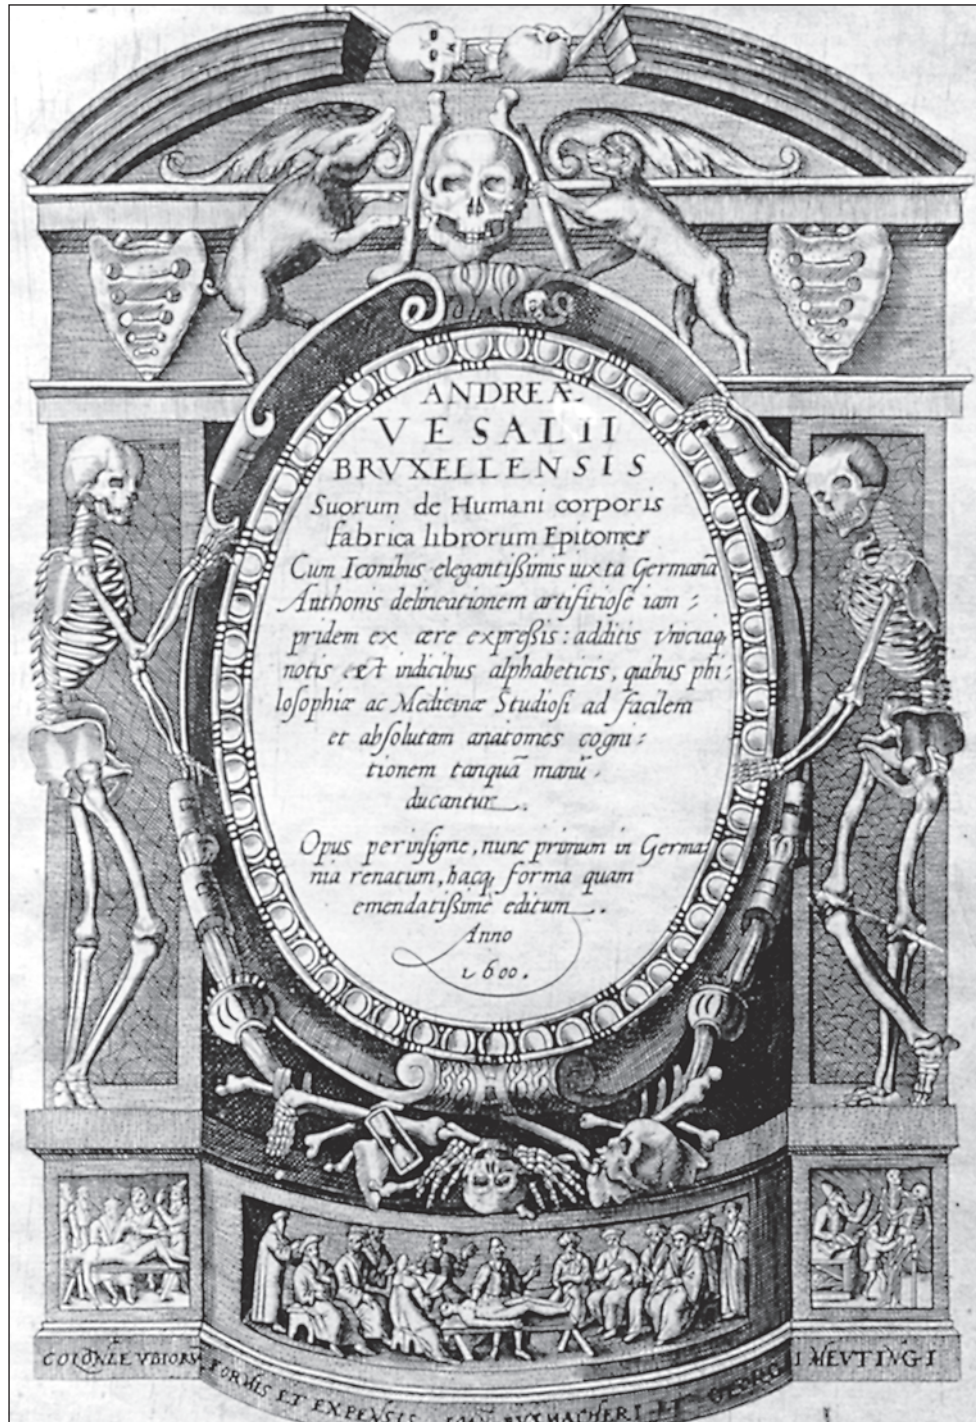 ANDREÆ
VESALII
BRVXELLENSIS
Suorum de Humani corporis
fabrica librorum Epitome
Cum Iconibus elegantißimis iuxta Germanā
Anthonis delineationem artifitiose iam
pridem ex ære expreßis: additis
notis et indicibus alphabeticis, quibus phi:
losophiæ ac Medicinæ Studiosi ad facilem
et absolutam anatomes cogni:
tionem tanquā manu
ducantur.
Opus perinsigne, nunc primum in Germa:
nia renatum, hacq; forma quam
emendatißimè editum.
Anno
1600.
COLONIÆ VBIORV FORMIS ET EXPENSIS BVXMACHERI ET GEORGI MEVTINGI